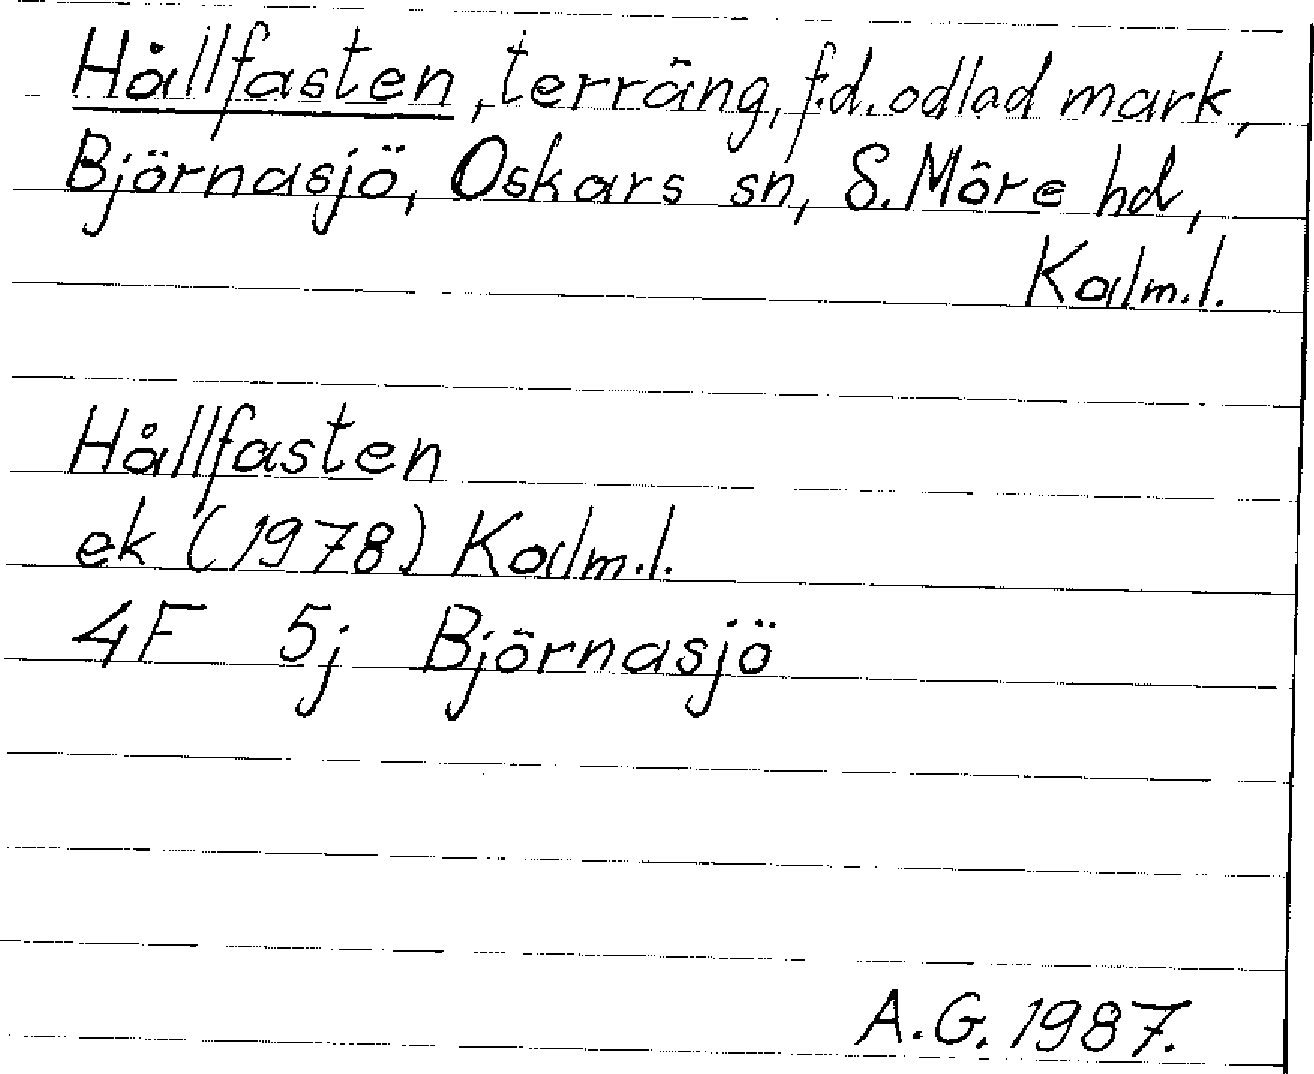 Hållfasten, terräng, f.d. odlad mark,
Björnasjö, Oskars sn, S. Möre hd,
Kalm.l.
Hållfasten
ek (1978) Kalm.l.
4F 5j Björnasjö
A.G. 1987.